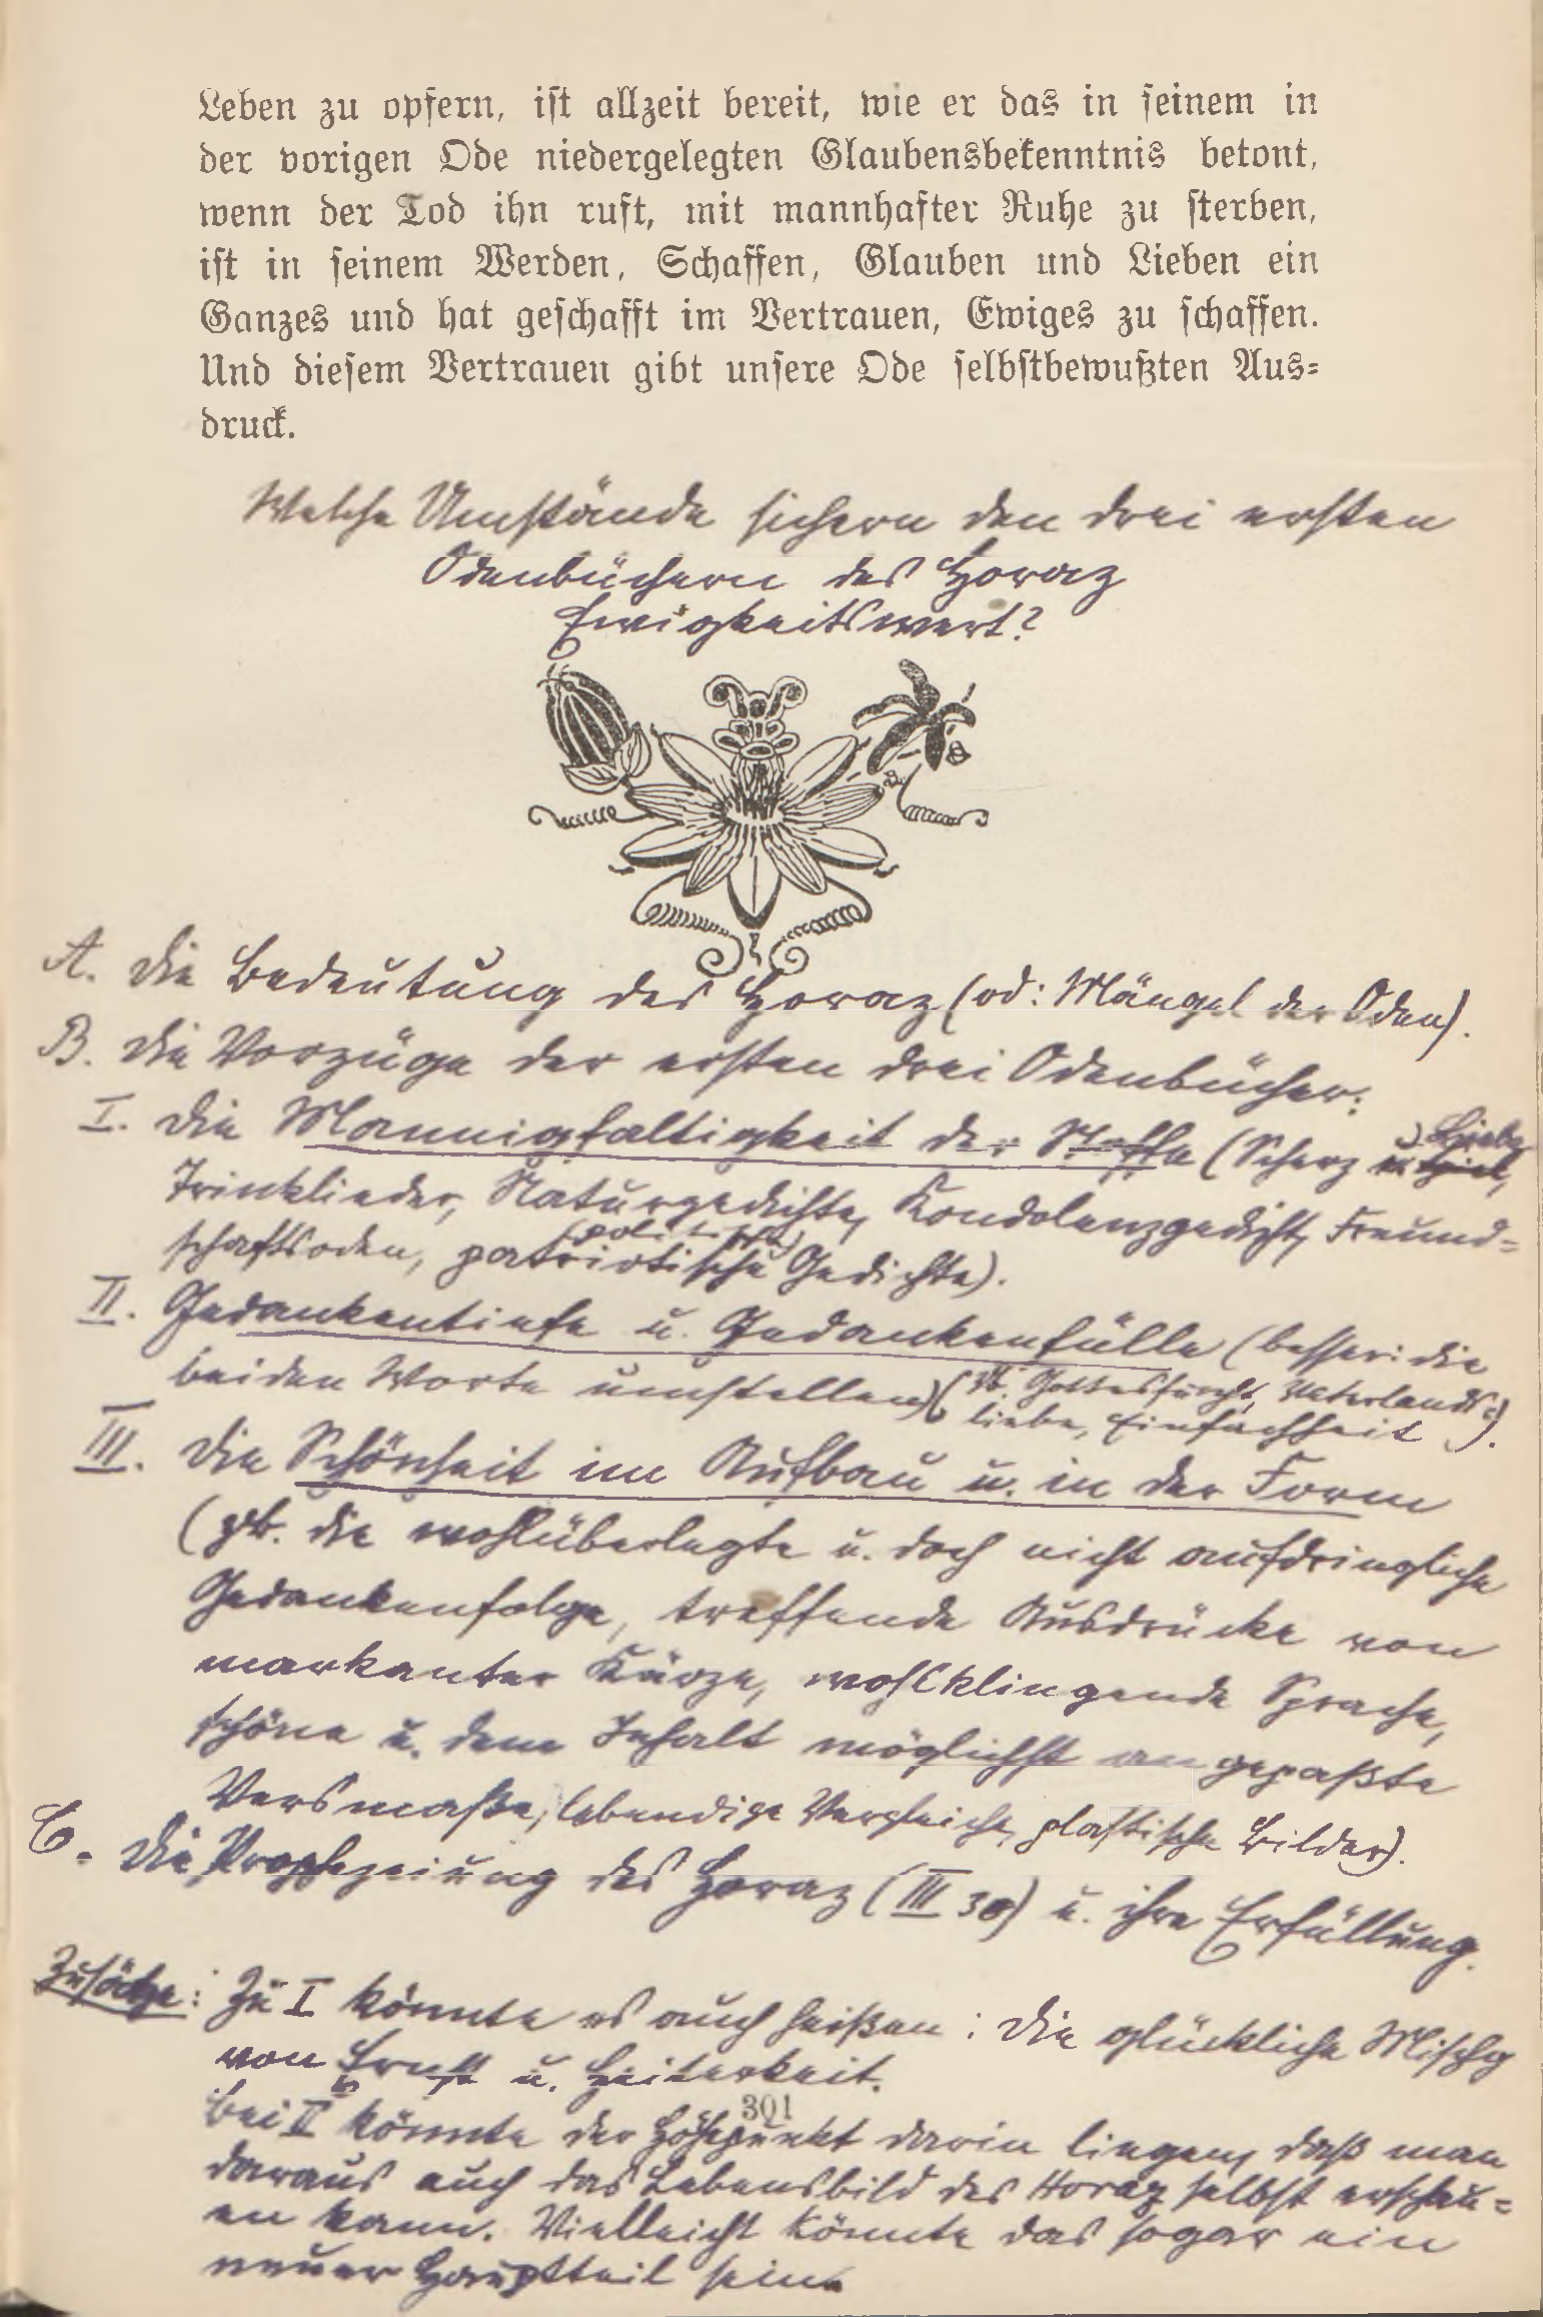 Leben zu opfern, ist allzeit bereit, wie er das in seinem in
der vorigen Ode niedergelegten Glaubensbekenntnis betont,
wenn der Tod ihn ruft, mit mannhafter Ruhe zu sterben,
ist in seinem Werden, Schaffen, Glauben und Lieben ein
Ganzes und hat geschafft im Vertrauen, Ewiges zu schaffen.
Und diesem Vertrauen gibt unsere Ode selbstbewußten Aus-
druck.
Welche Umstände sichern den drei ersten
Odenbüchern des Horaz
Ewigkeitswert?
A. Die Bedeutung des Horaz (od: Mängel der Oden).
B. Die Vorzüge der ersten drei Odenbücher:
I. Die Mannigfaltigkeit der Stoffe (Scherz u. Liebe,
Trinklieder, Naturgedichte, Kondolenzgedicht, Freund-
(politische)
schaftsoden, patriotische Gedichte).
II. Gedankentiefe u. Gedankenfülle (besser: die
beiden Worte umstellen) (zb. Gottesfurcht, Vaterlands-
liebe, Einfachheit).
III. Die Schönheit im Aufbau u. in der Form
(zb. die wohlüberlegte u. doch nicht aufdringliche
Gedankenfolge, treffende Ausdrücke von
markanter Kürze, wohlklingende Sprache,
schöne u. dem Inhalt möglichst angepaßte
Versmaße, lebendige Vergleiche, plastische Bilder).
C. Die Prophezeiung des Horaz (III 30) u. ihre Erfüllung.
Zusätze: Zu I könnte es auch heißen: Die glückliche Mischg
von Ernst u. Heiterkeit.
301
Bei II könnte der Höhepunkt darin liegen, daß man
daraus auch das Lebensbild des Horaz selbst erschau-
en kann. Vielleicht könnte das sogar ein
neuer Hauptteil sein.